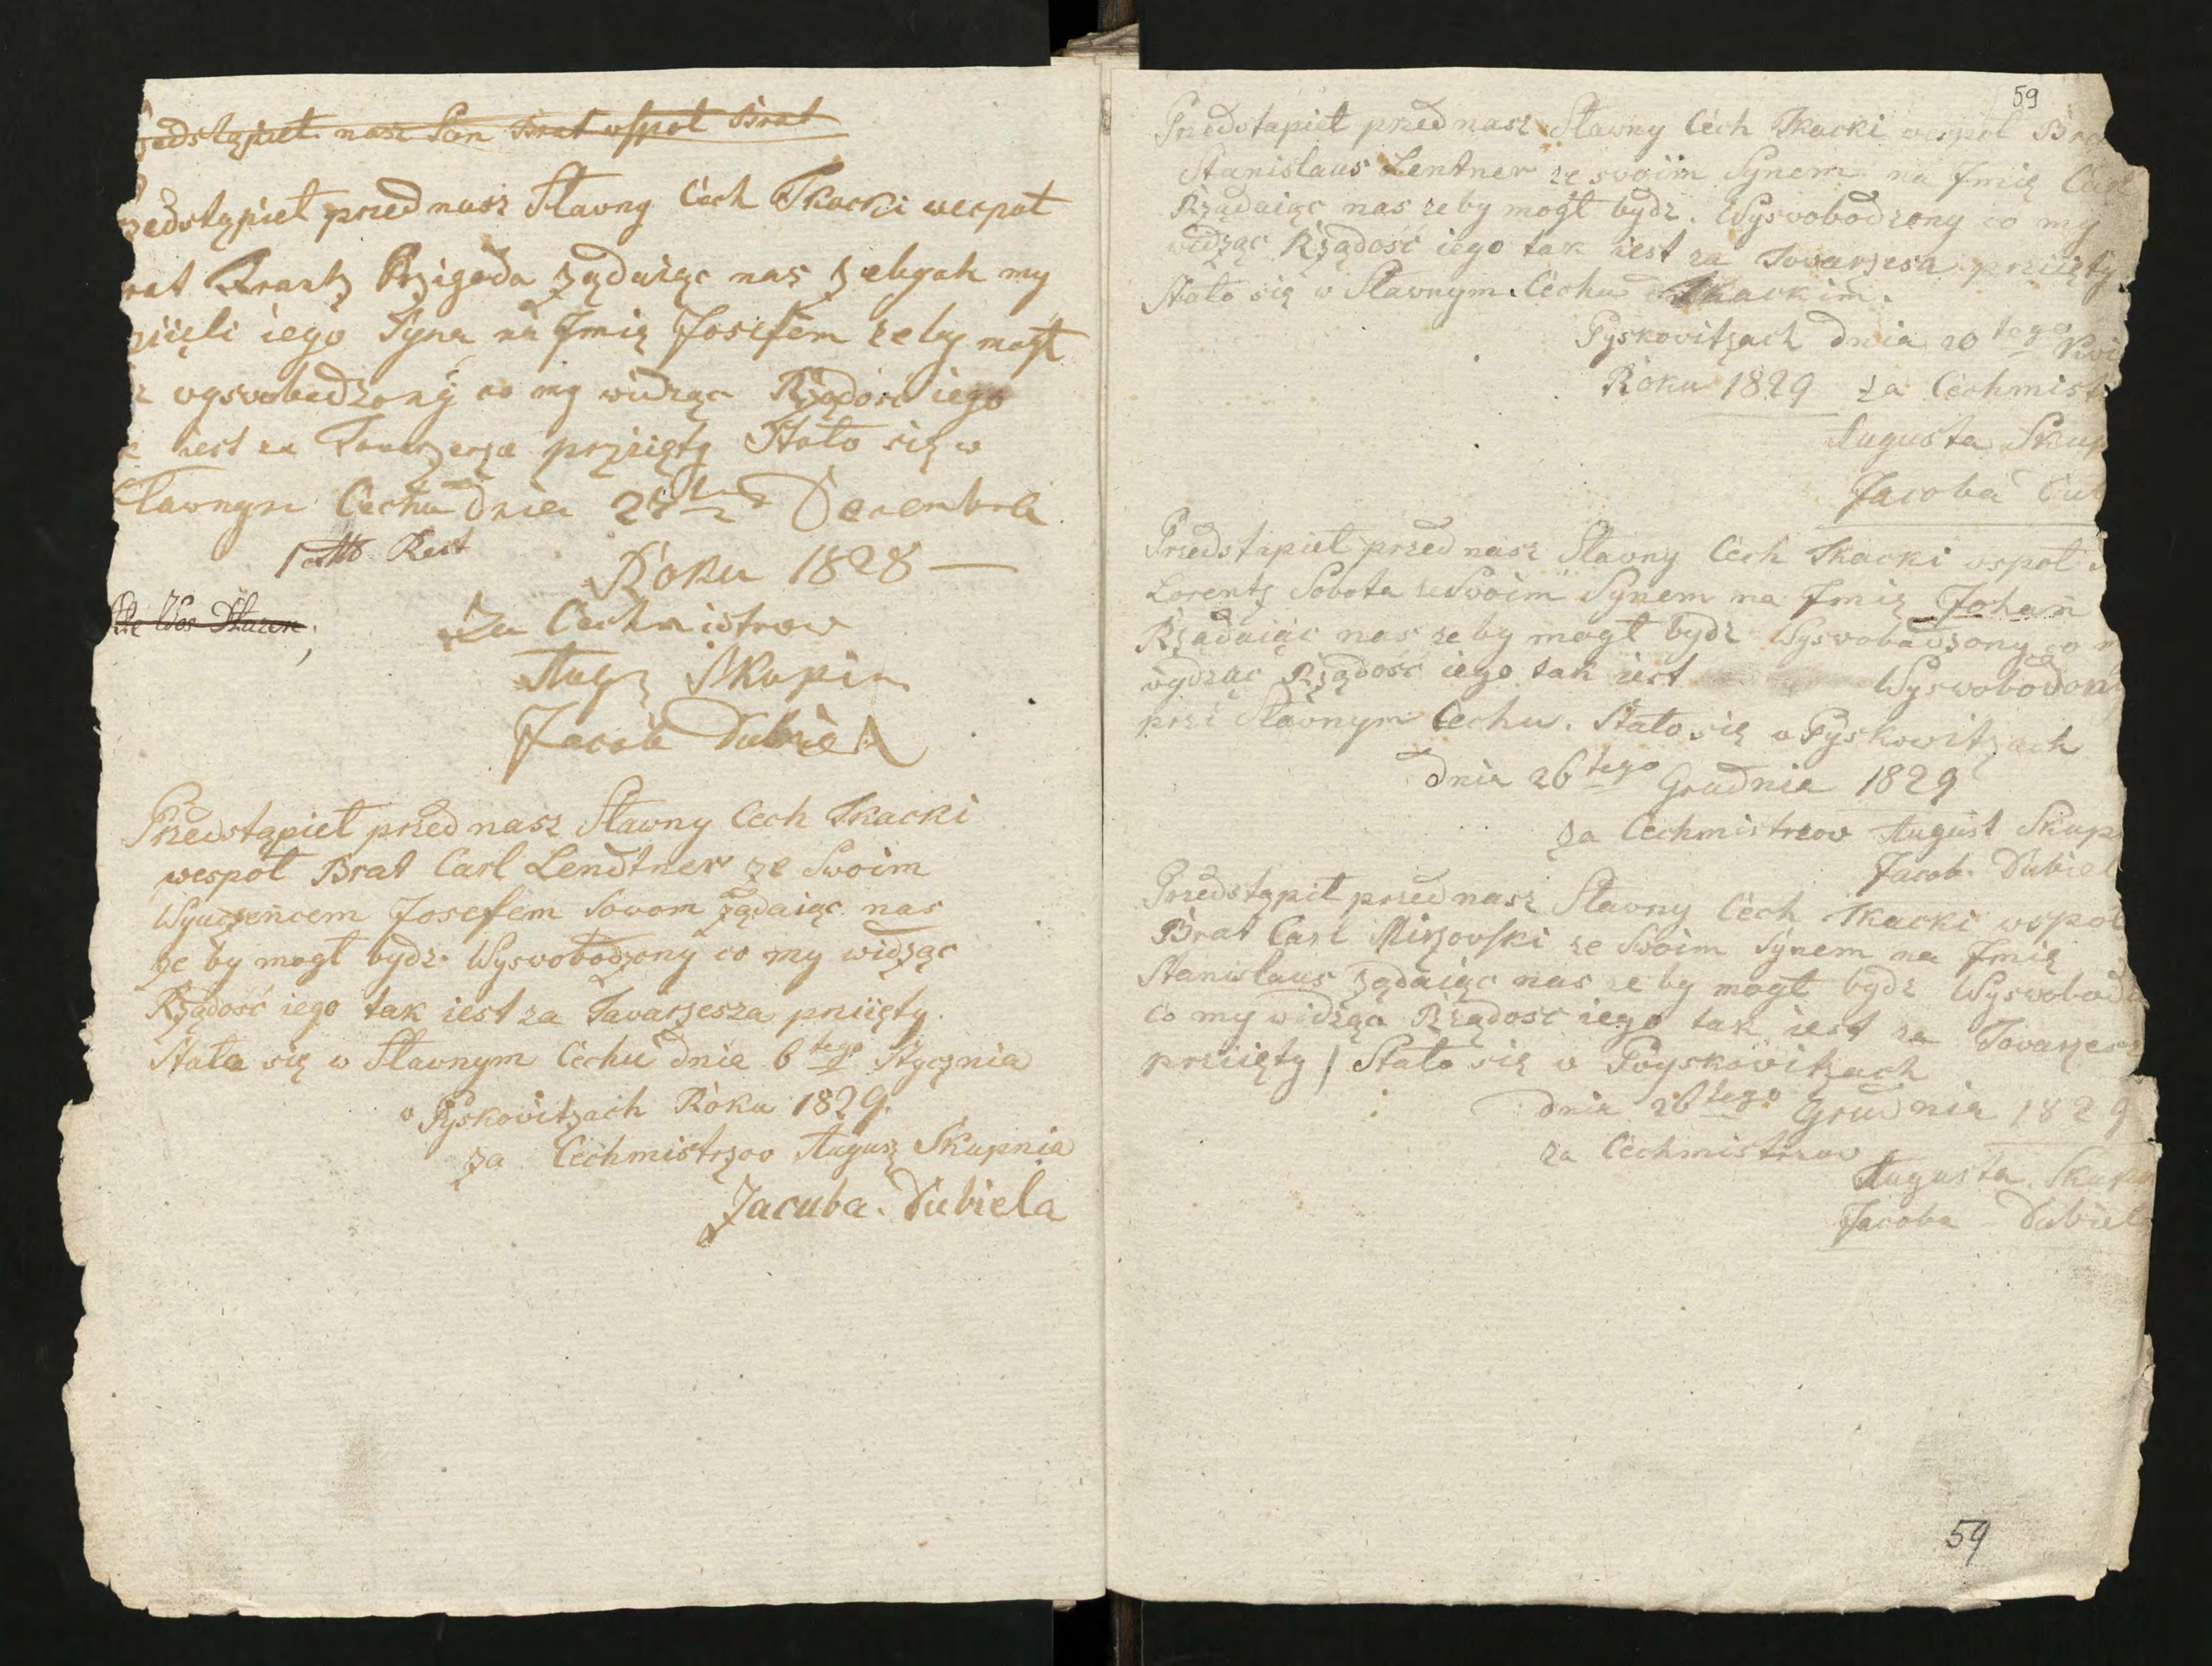 zedstąpieł nasz Pan Brat wspoł Brat
zedstąpieł przed nasz Sławny Cech Tkacki wespoł
rat Frantz Przigoda żądaiąc nas żebych my
ziięli iego Syna na Jmię Josefem zeby mogł
wysvobodzony co my widząc Rządość iego
iest za Towarzesza prziięty Stało się w
Sławnym Cechu dnia 27 Decembra
Rest
Roku 1828
Za Cechmistrow
Augз Skupin
Jacob Dubiel
Przedstąpieł przed nasz Sławny Cech Tkacki
wespoł Brat Carl Lendtner ze Swoim
Wyuczeńcem Josefem Sovom żądaiąc nas
że by mogł bydz Wysvobodzony co my widząc
Rządość iego tak iest za Tavarzesza priięty.
Stało się w Sławnym Cechu dnia 6 tego Stycznia
v Pyskowitzach Roku 1829.
za Cechmistrzov Augusz Skupnia
Jacuba. Dubiela
59
Przedstąpieł przed nasz Sławny Cech Tkacki wespoł Bra
Stanislaus Lentner ze svoim Synem na Jmię Carl
Rządaiąc nas zeby mogł bydz. Wysvobodzony co my
widząc Rządość iego tak iest za Tovarzesa prziięty.
Stało się w Sławnym Cechu Tkackim.
Pyskovitzach dnia 20 tego Kwi
Roku 1829 za Cechmist
Augusta Skup
Jacoba Dub
Przedstąpieł przed nasz Sławny Cech Tkacki vspoł
Lorentz Sobota ze Svoim Synem na Jmię Johan
Rządaiąc nas zeby mogł bydz Wysvobadzony co m
wydząc Rządość iego tak iest Wyswobodon
przi Sławnym Cechu. Stało się v Pyskowitzach
dnia 26 tego Grudnia 1829
za Cechmistrzow August Skup
Jacob. Dubiel
Przedstąpił przed nasz Sławny Cech Tkacki wspoł
Brat Carl Mirzovski ze Swoim Synem na Jmię
Stanislaus żądaiąc nas ze by mogł bydz Wysvobod
co my widząca Rządość iego tak iest za Tovarzesz
prziięty / Stało się v Pyskovitzach
dnia 26 tego Grudnia 1829
za Cechmistrzov
Augusta Skupn
Jacoba Dubiel
59